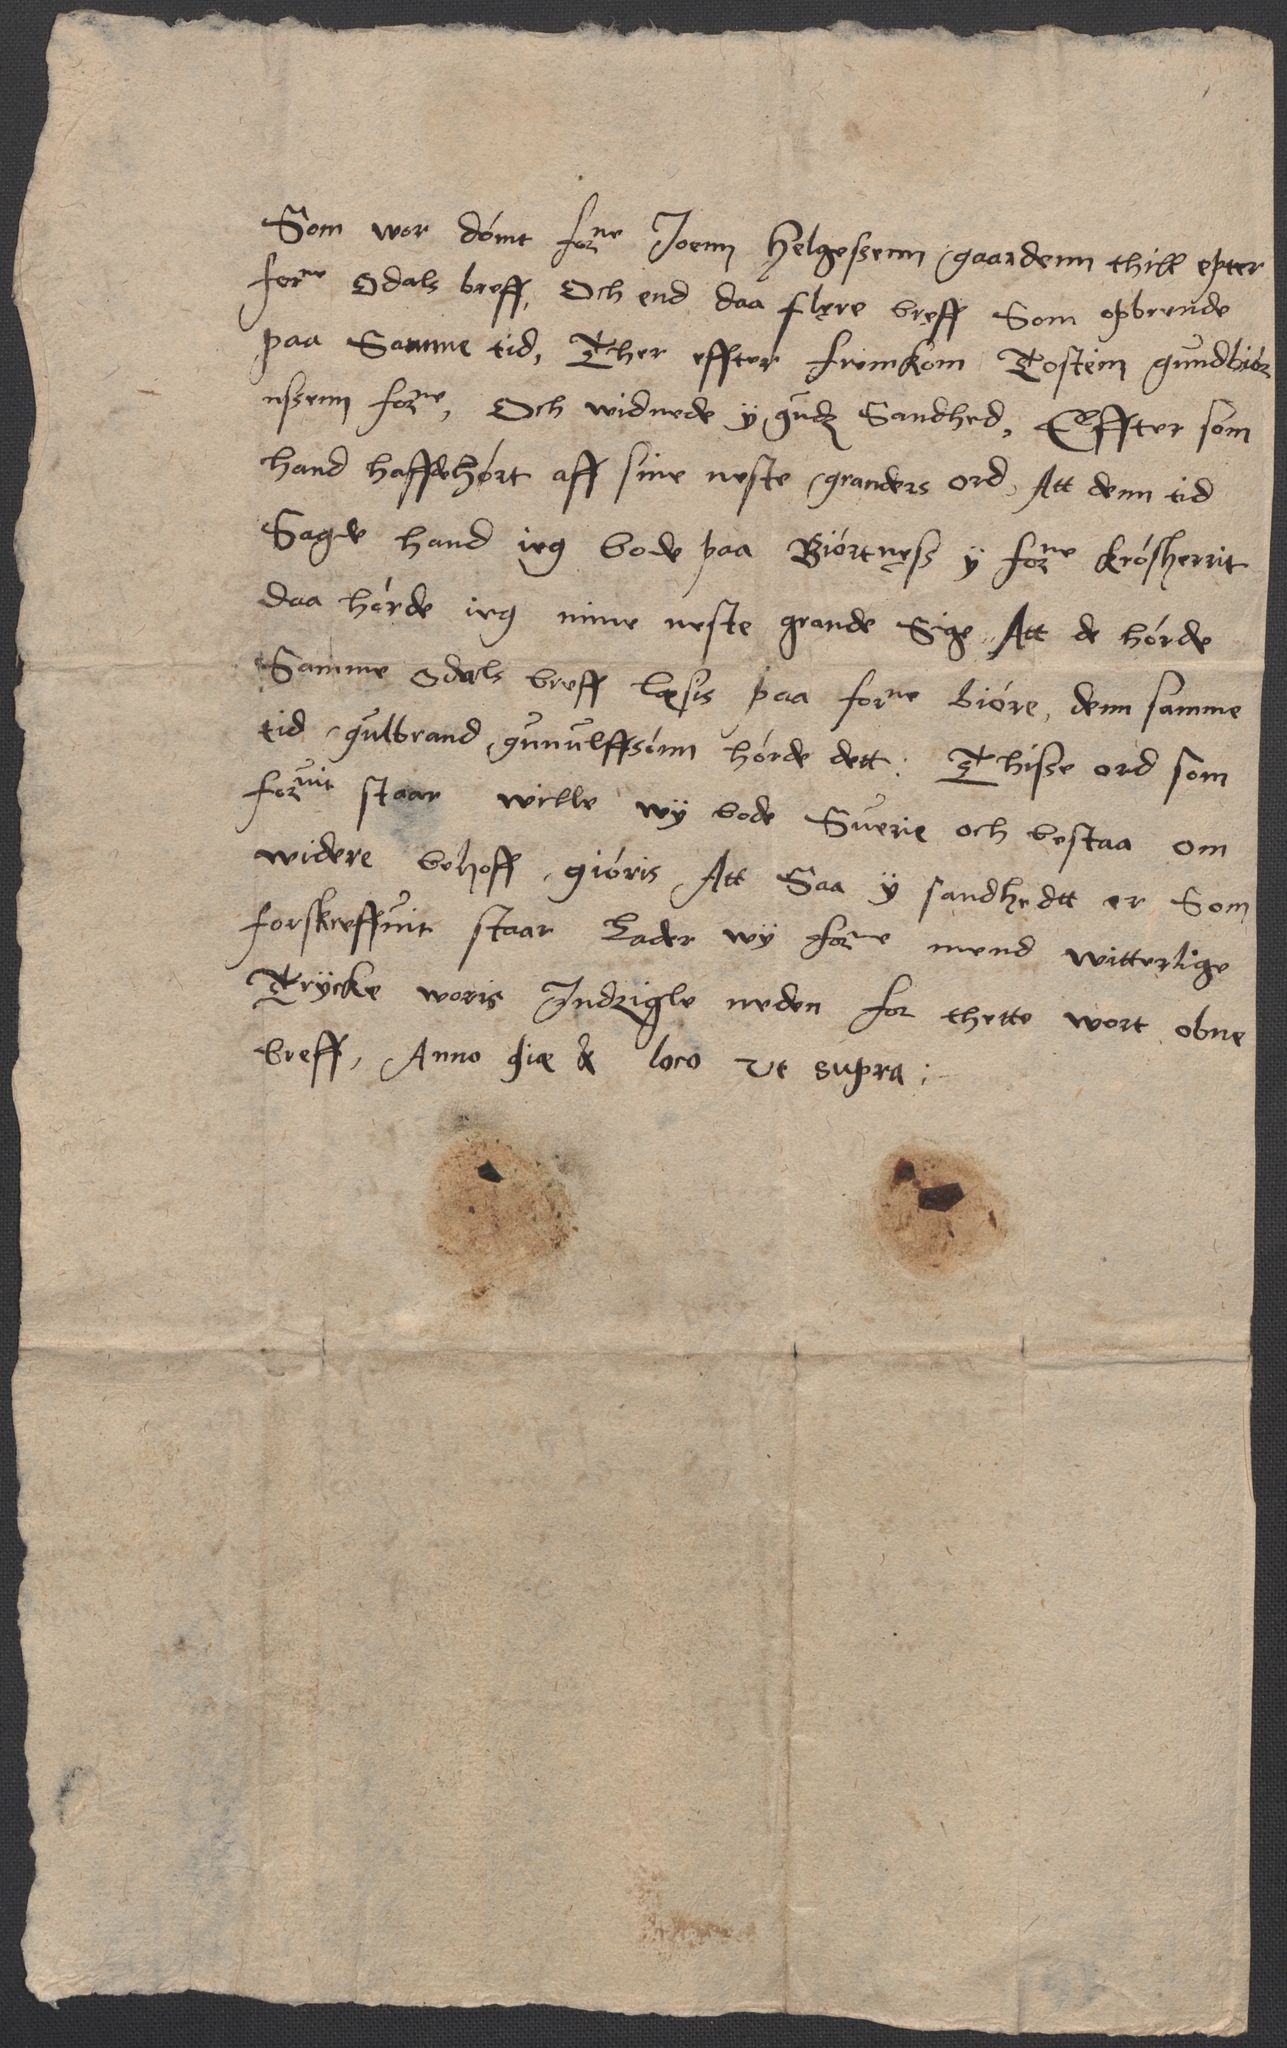 Som wor dómt forne Joenn Helgessenn gaardenn thill epter
forne Odals breff, Och end daa flere breff Som opbrende
paa Samme tid, Ther effter fremkom Tostenn gundbiór
nssenn forne, Och widnede ÿ gudz Sandhed, Effter som
hand haffde hórt aff sine neste granders ord, Att denn tid
Sagde hand ieg bode paa Biórtness ÿ forne krósherrit
daa hórde ieg mine neste grande Sige, Att de hórde
Samme odals breff læsis paa forne bióre, denn samme
tid gulbrand gunulffsónn hórde dett: Thisse ord som
foruit staar wille wÿ bode Suerie och bestaa om
widere behoff gióris Att Saa ÿ sandhedtt er Som
forskreffuit staar Lader wÿ forne mend witterlige
Trÿcke woris Indzigle neden for thette wort obne
breff, Anno die & loco Vt supra: